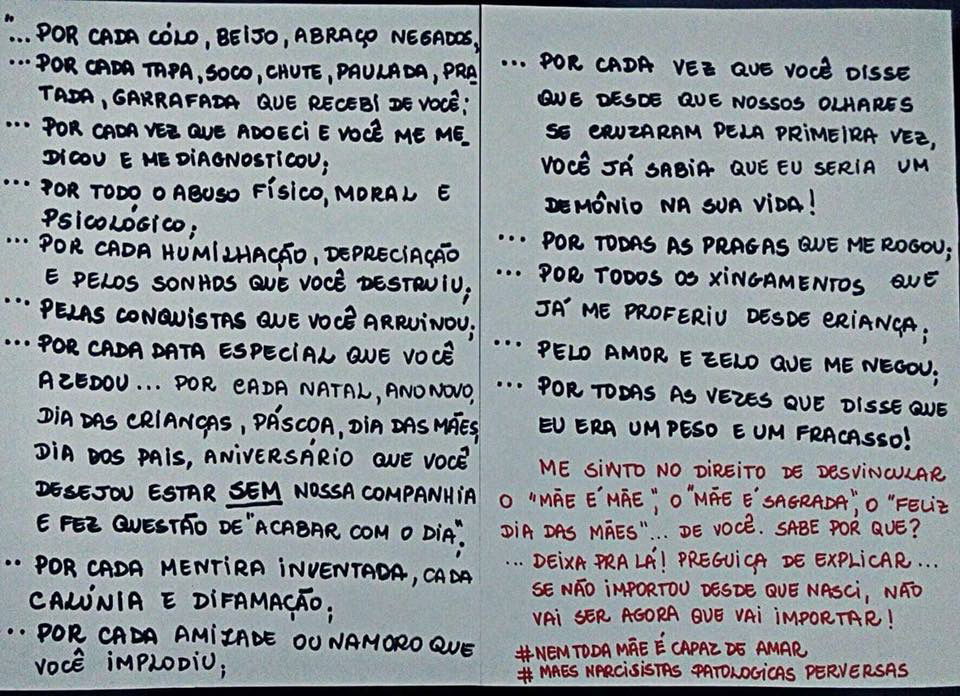 "... POR CADA CÓLO, BEIJO, ABRAÇO NEGADOS,
... POR CADA TAPA, SOCO, CHUTE, PAULADA, PRA
TADA, GARRAFADA QUE RECEBI DE VOCÊ;
... POR CADA VEZ QUE ADOECI E VOCÊ ME ME_
DICOU E ME DIAGNOSTICOU;
... POR TODO O ABUSO FÍSICO, MORAL E
PSICOLÓGICO;
... POR CADA HUMILHAÇÃO, DEPRECIAÇÃO
E PELOS SONHOS QUE VOCÊ DESTRUIU;
... PELAS CONQUISTAS QUE VOCÊ ARRUINOU;
... POR CADA DATA ESPECIAL QUE VOCÊ
AZEDOU... POR CADA NATAL, ANO NOVO,
DIA DAS CRIANÇAS, PÁSCOA, DIA DAS MÃES,
DIA DOS PAIS, ANIVERSÁRIO QUE VOCÊ
DESEJOU ESTAR SEM NOSSA COMPANHIA
E FEZ QUESTÃO DE "ACABAR COM O DIA";
.. POR CADA MENTIRA INVENTADA, CADA
CALÚNIA E DIFAMAÇÃO;
.. POR CADA AMIZADE OU NAMORO QUE
VOCÊ IMPLODIU;
... POR CADA VEZ QUE VOCÊ DISSE
QUE DESDE QUE NOSSOS OLHARES
SE CRUZARAM PELA PRIMEIRA VEZ,
VOCÊ JÁ SABIA QUE EU SERIA UM
DEMÔNIO NA SUA VIDA!
... POR TODAS AS PRAGAS QUE ME ROGOU;
... POR TODOS OS XINGAMENTOS QUE
JÁ ME PROFERIU DESDE CRIANÇA;
... PELO AMOR E ZELO QUE ME NEGOU;
... POR TODAS AS VEZES QUE DISSE QUE
EU ERA UM PESO E UM FRACASSO!
ME SINTO NO DIREITO DE DESVINCULAR
O "MÃE É MÃE", O "MÃE É SAGRADA", O "FELIZ
DIA DAS MÃES"... DE VOCÊ. SABE POR QUE?
... DEIXA PRA LÁ! PREGUIÇA DE EXPLICAR...
SE NÃO IMPORTOU DESDE QUE NASCI, NÃO
VAI SER AGORA QUE VAI IMPORTAR!
#NEM TODA MÃE É CAPAZ DE AMAR
# MAES NARCISISTAS PATOLOGICAS PERVERSAS